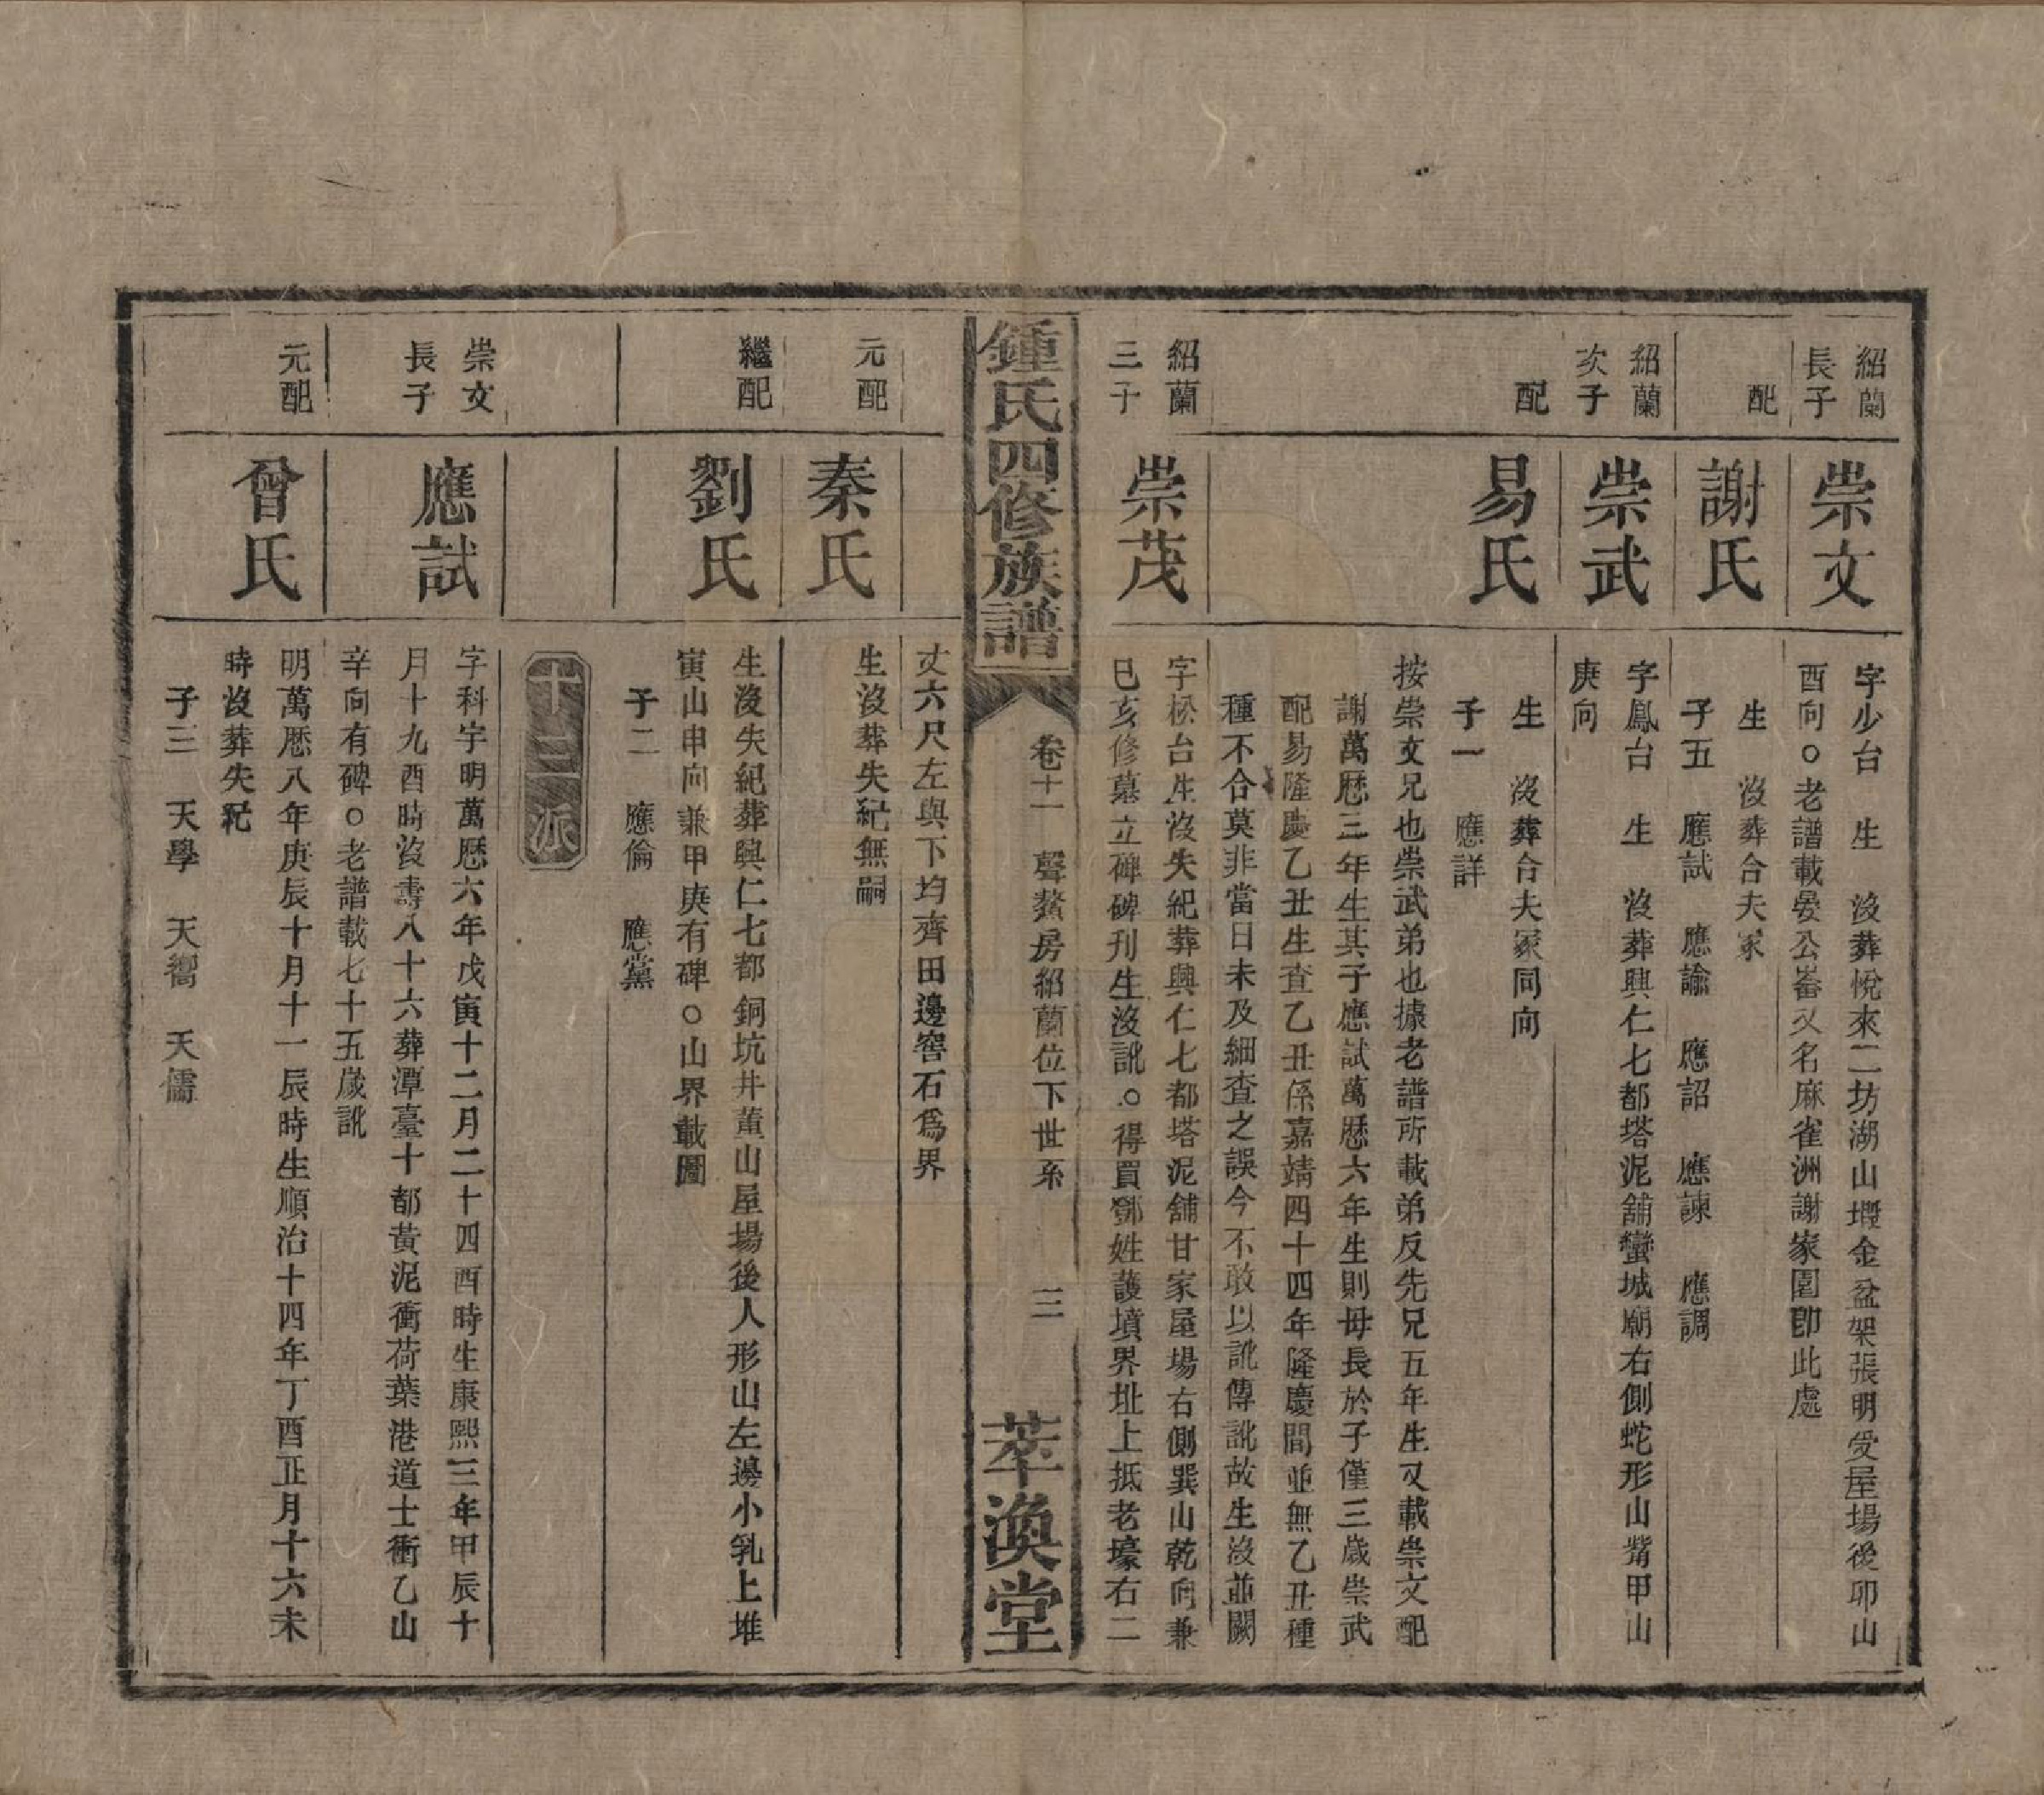 紹蘭
長子
崇文
字少台　生　沒葬悅來二坊湖山壩金盆架張明受屋場後卯山
酉向○老譜載晏公崙又名麻雀洲謝家園即此處
配
謝氏
生　沒葬合夫冢
子五　應試　應諭　應詔　應諫　應調
紹蘭
次子
崇武
字鳳台　生　沒葬興仁七都塔泥舖蠻城廟右側蛇形山嘴甲山
庚向
配
易氏
生　沒葬合夫冢同向
子一　應詳
按崇文兄也崇武弟也據老譜所載弟反先兄五年生又載崇文配
謝萬歷三年生其子應試萬歷六年生則母長於子僅三歲崇武
配易隆慶乙丑生查乙丑係嘉靖四十四年隆慶間並無乙丑種
種不合莫非當日未及細查之誤今不敢以訛傳訛故生沒並闕
紹蘭
三子
崇茂
字松台生沒失紀葬興仁七都塔泥舖甘家屋場右側巽山乾向兼
巳亥修墓立碑碑刊生沒訛○得買鄧姓護墳界址上抵老壕右二
鍾氏四修族譜
卷十一　聲鰲房紹蘭位下世系　三
萃渙堂
丈六尺左與下均齊田邊窖石為界
元配
秦氏
生沒葬失紀無嗣
繼配
劉氏
生沒失紀葬興仁七都銅坑井董山屋場後人形山左邊小乳上堆
寅山申向兼甲庚有碑○山界載圖
子二　應倫　應黨
十三派
崇文
長子
應試
字科宇明萬歷六年戊寅十二月二十四酉時生康熙三年甲辰十
月十九酉時沒壽八十六葬潭臺十都黃泥衝荷葉港道士衝乙山
辛向有碑○老譜載七十五歲訛
元配
曾氏
明萬歷八年庚辰十月十一辰時生順治十四年丁酉正月十六未
時沒葬失紀
子三　天學　天嚮　天儒